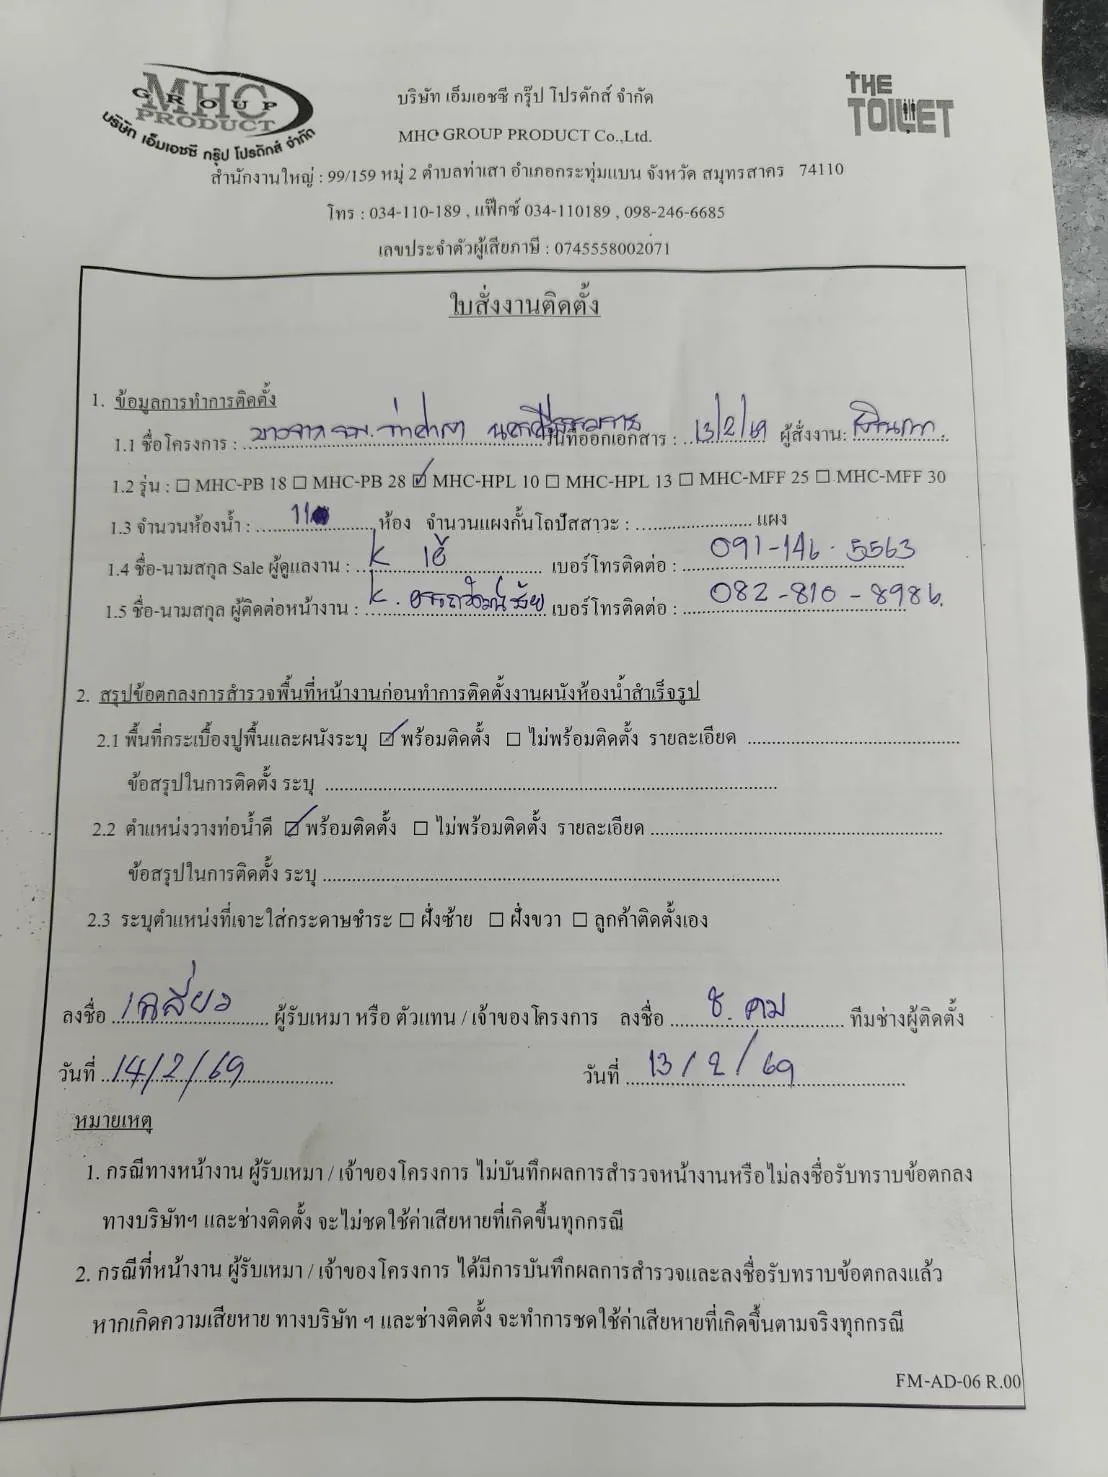 MHC
GROUP
PRODUCT
บริษัท เอ็มเอชซี กรุ๊ป โปรดักส์ จำกัด
THE
TOILET
บริษัท เอ็มเอชซี กรุ๊ป โปรดักส์ จำกัด
MHC GROUP PRODUCT Co.,Ltd.
สำนักงานใหญ่ : 99/159 หมู่ 2 ตำบลท่าเสา อำเภอกระทุ่มแบน จังหวัด สมุทรสาคร 74110
โทร : 034-110-189 , แฟ๊กซ์ 034-110189 , 098-246-6685
เลขประจำตัวผู้เสียภาษี : 0745558002071
ใบสั่งงานติดตั้ง
1. ข้อมูลการทำการติดตั้ง
1.1 ชื่อโครงการ : บางจาก วันที่ออกเอกสาร : 13/2/69 ผู้สั่งงาน:
1.2 รุ่น : ☐ MHC-PB 18 ☐ MHC-PB 28 ☑ MHC-HPL 10 ☐ MHC-HPL 13 ☐ MHC-MFF 25 ☐ MHC-MFF 30
1.3 จำนวนห้องน้ำ : 11 ห้อง จำนวนแผงกั้นโถปัสสาวะ : ........................ แผง
1.4 ชื่อ-นามสกุล Sale ผู้ดูแลงาน : K เอ้ เบอร์โทรติดต่อ : 091-146-5563
1.5 ชื่อ-นามสกุล ผู้ติดต่อหน้างาน : K. เบอร์โทรติดต่อ : 082-810-8986
2. สรุปข้อตกลงการสำรวจพื้นที่หน้างานก่อนทำการติดตั้งงานผนังห้องน้ำสำเร็จรูป
2.1 พื้นที่กระเบื้องปูพื้นและผนังระบุ ☑ พร้อมติดตั้ง ☐ ไม่พร้อมติดตั้ง รายละเอียด ........................
ข้อสรุปในการติดตั้ง ระบุ ........................
2.2 ตำแหน่งวางท่อน้ำดี ☑ พร้อมติดตั้ง ☐ ไม่พร้อมติดตั้ง รายละเอียด ........................
ข้อสรุปในการติดตั้ง ระบุ ........................
2.3 ระบุตำแหน่งที่เจาะใส่กระดาษชำระ ☐ ฝั่งซ้าย ☐ ฝั่งขวา ☐ ลูกค้าติดตั้งเอง
ลงชื่อ ผู้รับเหมา หรือ ตัวแทน / เจ้าของโครงการ ลงชื่อ ช. คม ทีมช่างผู้ติดตั้ง
วันที่ 14/2/69 วันที่ 13/2/69
หมายเหตุ
1. กรณีทางหน้างาน ผู้รับเหมา / เจ้าของโครงการ ไม่บันทึกผลการสำรวจหน้างานหรือไม่ลงชื่อรับทราบข้อตกลง
ทางบริษัทฯ และช่างติดตั้ง จะไม่ชดใช้ค่าเสียหายที่เกิดขึ้นทุกกรณี
2. กรณีที่หน้างาน ผู้รับเหมา / เจ้าของโครงการ ได้มีการบันทึกผลการสำรวจและลงชื่อรับทราบข้อตกลงแล้ว
หากเกิดความเสียหาย ทางบริษัท ฯ และช่างติดตั้ง จะทำการชดใช้ค่าเสียหายที่เกิดขึ้นตามจริงทุกกรณี
FM-AD-06 R.00